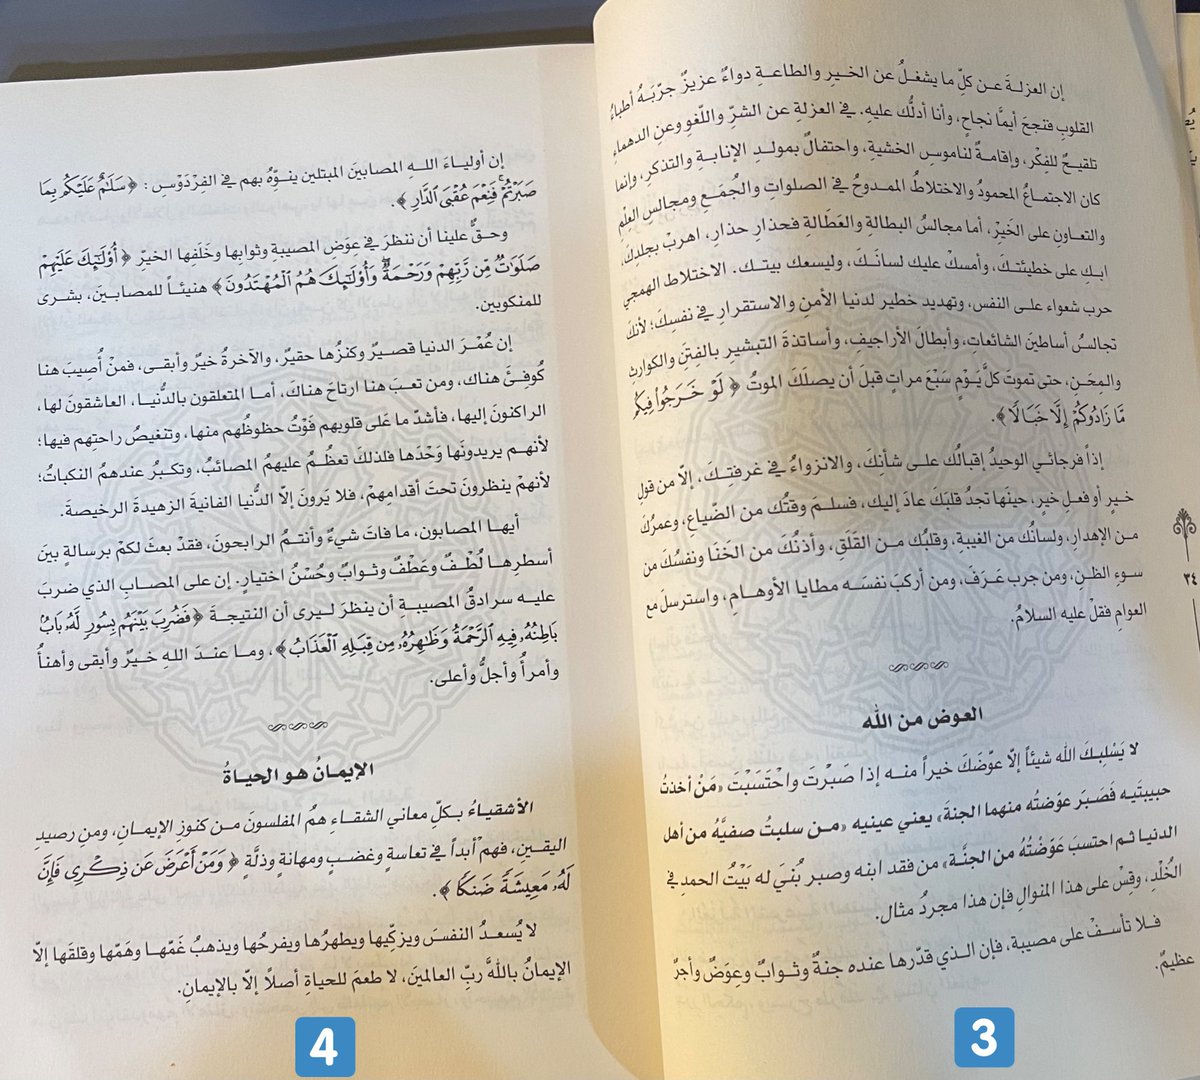 إن العزلةَ عن كلِّ ما يشغلُ عن الخيرِ والطاعةِ دواءٌ عزيزٌ جرّبَهُ أطباءُ
القلوبِ فنجحَ أيمَّا نجاحٍ، وأنا أدلُّك عليهِ. في العزلةِ عن الشرِّ واللّغوِ وعنِ الدهماءِ
تلقيحٌ للفِكْر، وإقامةٌ لناموسِ الخشيةِ، واحتفالٌ بمولدِ الإنابةِ والتذكرِ، وإنما
كان الاجتماعُ المحمودُ والاختلاطُ الممدوحُ في الصلواتِ والجُمَعِ ومجالسِ العِلْمِ
والتعاونِ على الخَيْرِ، أما مجالسُ البطالةِ والعَطَالةِ فحذارِ حذارِ، اهربْ بجلدِكَ،
ابكِ على خطيئتكَ، وأمسكْ عليك لسانَكَ، وليسعك بيتك. الاختلاط الهمجي
حرب شعواء على النفس، وتهديد خطير لدنيا الأمنِ والاستقرارِ في نفسِكَ؛ لأنكَ
تجالسُ أساطينَ الشائعاتِ، وأبطالَ الأراجيفِ، وأساتذةَ التبشيرِ بالفِتَنِ والكوارثِ
والمِحَنِ، حتى تموتَ كلَّ يَوْمٍ سَبْعَ مراتٍ قبلَ أن يصلَكَ الموتُ ﴿ لَوْ خَرَجُوا۟ فِيكُم
مَّا زَادُوكُمْ إِلَّا خَبَالًا ﴾.
إذاً فرجائي الوحيدُ إقبالُك على شأنِكَ، والانزواءُ في غرفتِكَ، إلّا من قولِ
خيرٍ أو فعلِ خيرٍ، حينَها تجدُ قلبَكَ عادَ إليك، فسلمَ وقتُك من الضّياعِ، وعمرُكَ
من الإهدارِ، ولسانُك من الغيبةِ، وقلبُك من القَلَقِ، وأذنُكَ من الخَنَا ونفسُكَ من
سوءِ الظنِ، ومن جرب عَرَفَ، ومن أركبَ نفسَه مطايا الأوهامِ، واسترسلَ مع
العوامِ فقلْ عليه السلامُ.
٣٤
العوض من الله
لا يَسْلِبكَ الله شيئاً إلّا عوّضَكَ خيراً منه إذا صَبَرْتَ واحْتَسَبْتَ «مَنْ أخذتُ
حبيبتَيه فَصَبَر عوّضته منهما الجنةَ» يعني عينيه «من سلبتُ صفيَّه من أهلِ
الدنيا ثم احتسبَ عَوَضْتُهُ من الجنَّة» من فقد ابنه وصبر بُنِيَ له بَيْتُ الحمدِ في
الخُلْدِ، وقِسْ على هذا المنوالِ فإن هذا مجردُ مثال.
فلا تأسفْ على مصيبة، فإن الذي قدّرها عنده جنةٌ وثوابٌ وعِوَضٌ وأجرٌ
عظيمٌ.
3
إن أولياءَ اللهِ المصابينَ المبتلين ينوَّهُ بهم في الفِرْدَوْسِ : ﴿ سَلَٰمٌ عَلَيْكُم بِمَا
صَبَرْتُمْ فَنِعْمَ عُقْبَى ٱلدَّارِ ﴾.
وحقٌّ علينا أن ننظرَ في عِوَضِ المصيبةِ وثوابها وخَلَفها الخيرِّ ﴿ أُو۟لَٰٓئِكَ عَلَيْهِمْ
صَلَوَٰتٌ مِّن رَّبِّهِمْ وَرَحْمَةٌ وَأُو۟لَٰٓئِكَ هُمُ ٱلْمُهْتَدُونَ ﴾ هنيئاً للمصابينَ، بشرى
للمنكوبين.
إن عُمْرَ الدنيا قصيرٌ وكنزُها حقيرٌ، والآخرةُ خيرٌ وأبقى، فمنْ أُصيبَ هنا
كُوفئَ هناك، ومن تعبَ هنا ارتاحَ هناكَ، أما المتعلقون بالدُّنيا، العاشقونَ لها،
الراكنونَ إليها، فأشدّ ما عَلى قلوبهم فَوْتُ حظوظُهم منها، وتنغيصُ راحتِهم فيها؛
لأنهم يريدونَها وَحْدَها فلذلكَ تعظُمُ عليهمُ المصائبُ، وتكبرُ عندهمُ النكباتُ؛
لأنهمْ ينظرونَ تحتَ أقدامِهمْ، فلا يَرونَ إلّا الدُّنيا الفانيةَ الزهيدةَ الرخيصةَ.
أيها المصابون، ما فاتَ شيءٌ وأنتمُ الرابحونَ، فقدْ بعثَ لكمْ برسالةٍ بينَ
أسطرِها لُطْفٌ وعَطْفٌ وثوابٌ وحُسْنُ اختيارٍ. إن على المصابِ الذي ضربَ
عليه سرادقُ المصيبةِ أن ينظرَ ليرى أن النتيجةَ ﴿ فَضُرِبَ بَيْنَهُم بِسُورٍ لَّهُۥ بَابٌۢ
بَاطِنُهُۥ فِيهِ ٱلرَّحْمَةُ وَظَٰهِرُهُۥ مِن قِبَلِهِ ٱلْعَذَابُ ﴾، وما عندَ اللهِ خيرٌ وأبقى وأهنأُ
وأمرأُ وأجلُّ وأعلى.
الإيمانُ هو الحياةُ
الأشقياءُ بكلِّ معاني الشقاءِ هم المفلسونَ من كنوزِ الإيمانِ، ومن رصيدِ
اليقينِ، فهمْ أبداً في تعاسةٍ وغضبٍ ومهانةٍ وذلَّةٍ ﴿ وَمَنْ أَعْرَضَ عَن ذِكْرِى فَإِنَّ
لَهُۥ مَعِيشَةً ضَنكًا ﴾.
لا يُسعدُ النفسَ ويزكّيها ويطهرُها ويفرحُها ويذهبُ غَمّها وهَمّها وقلقَها إلّا
الإيمانُ باللهِ ربِّ العالمينَ، لا طعمَ للحياةِ أصلاً إلّا بالإيمانِ.
4